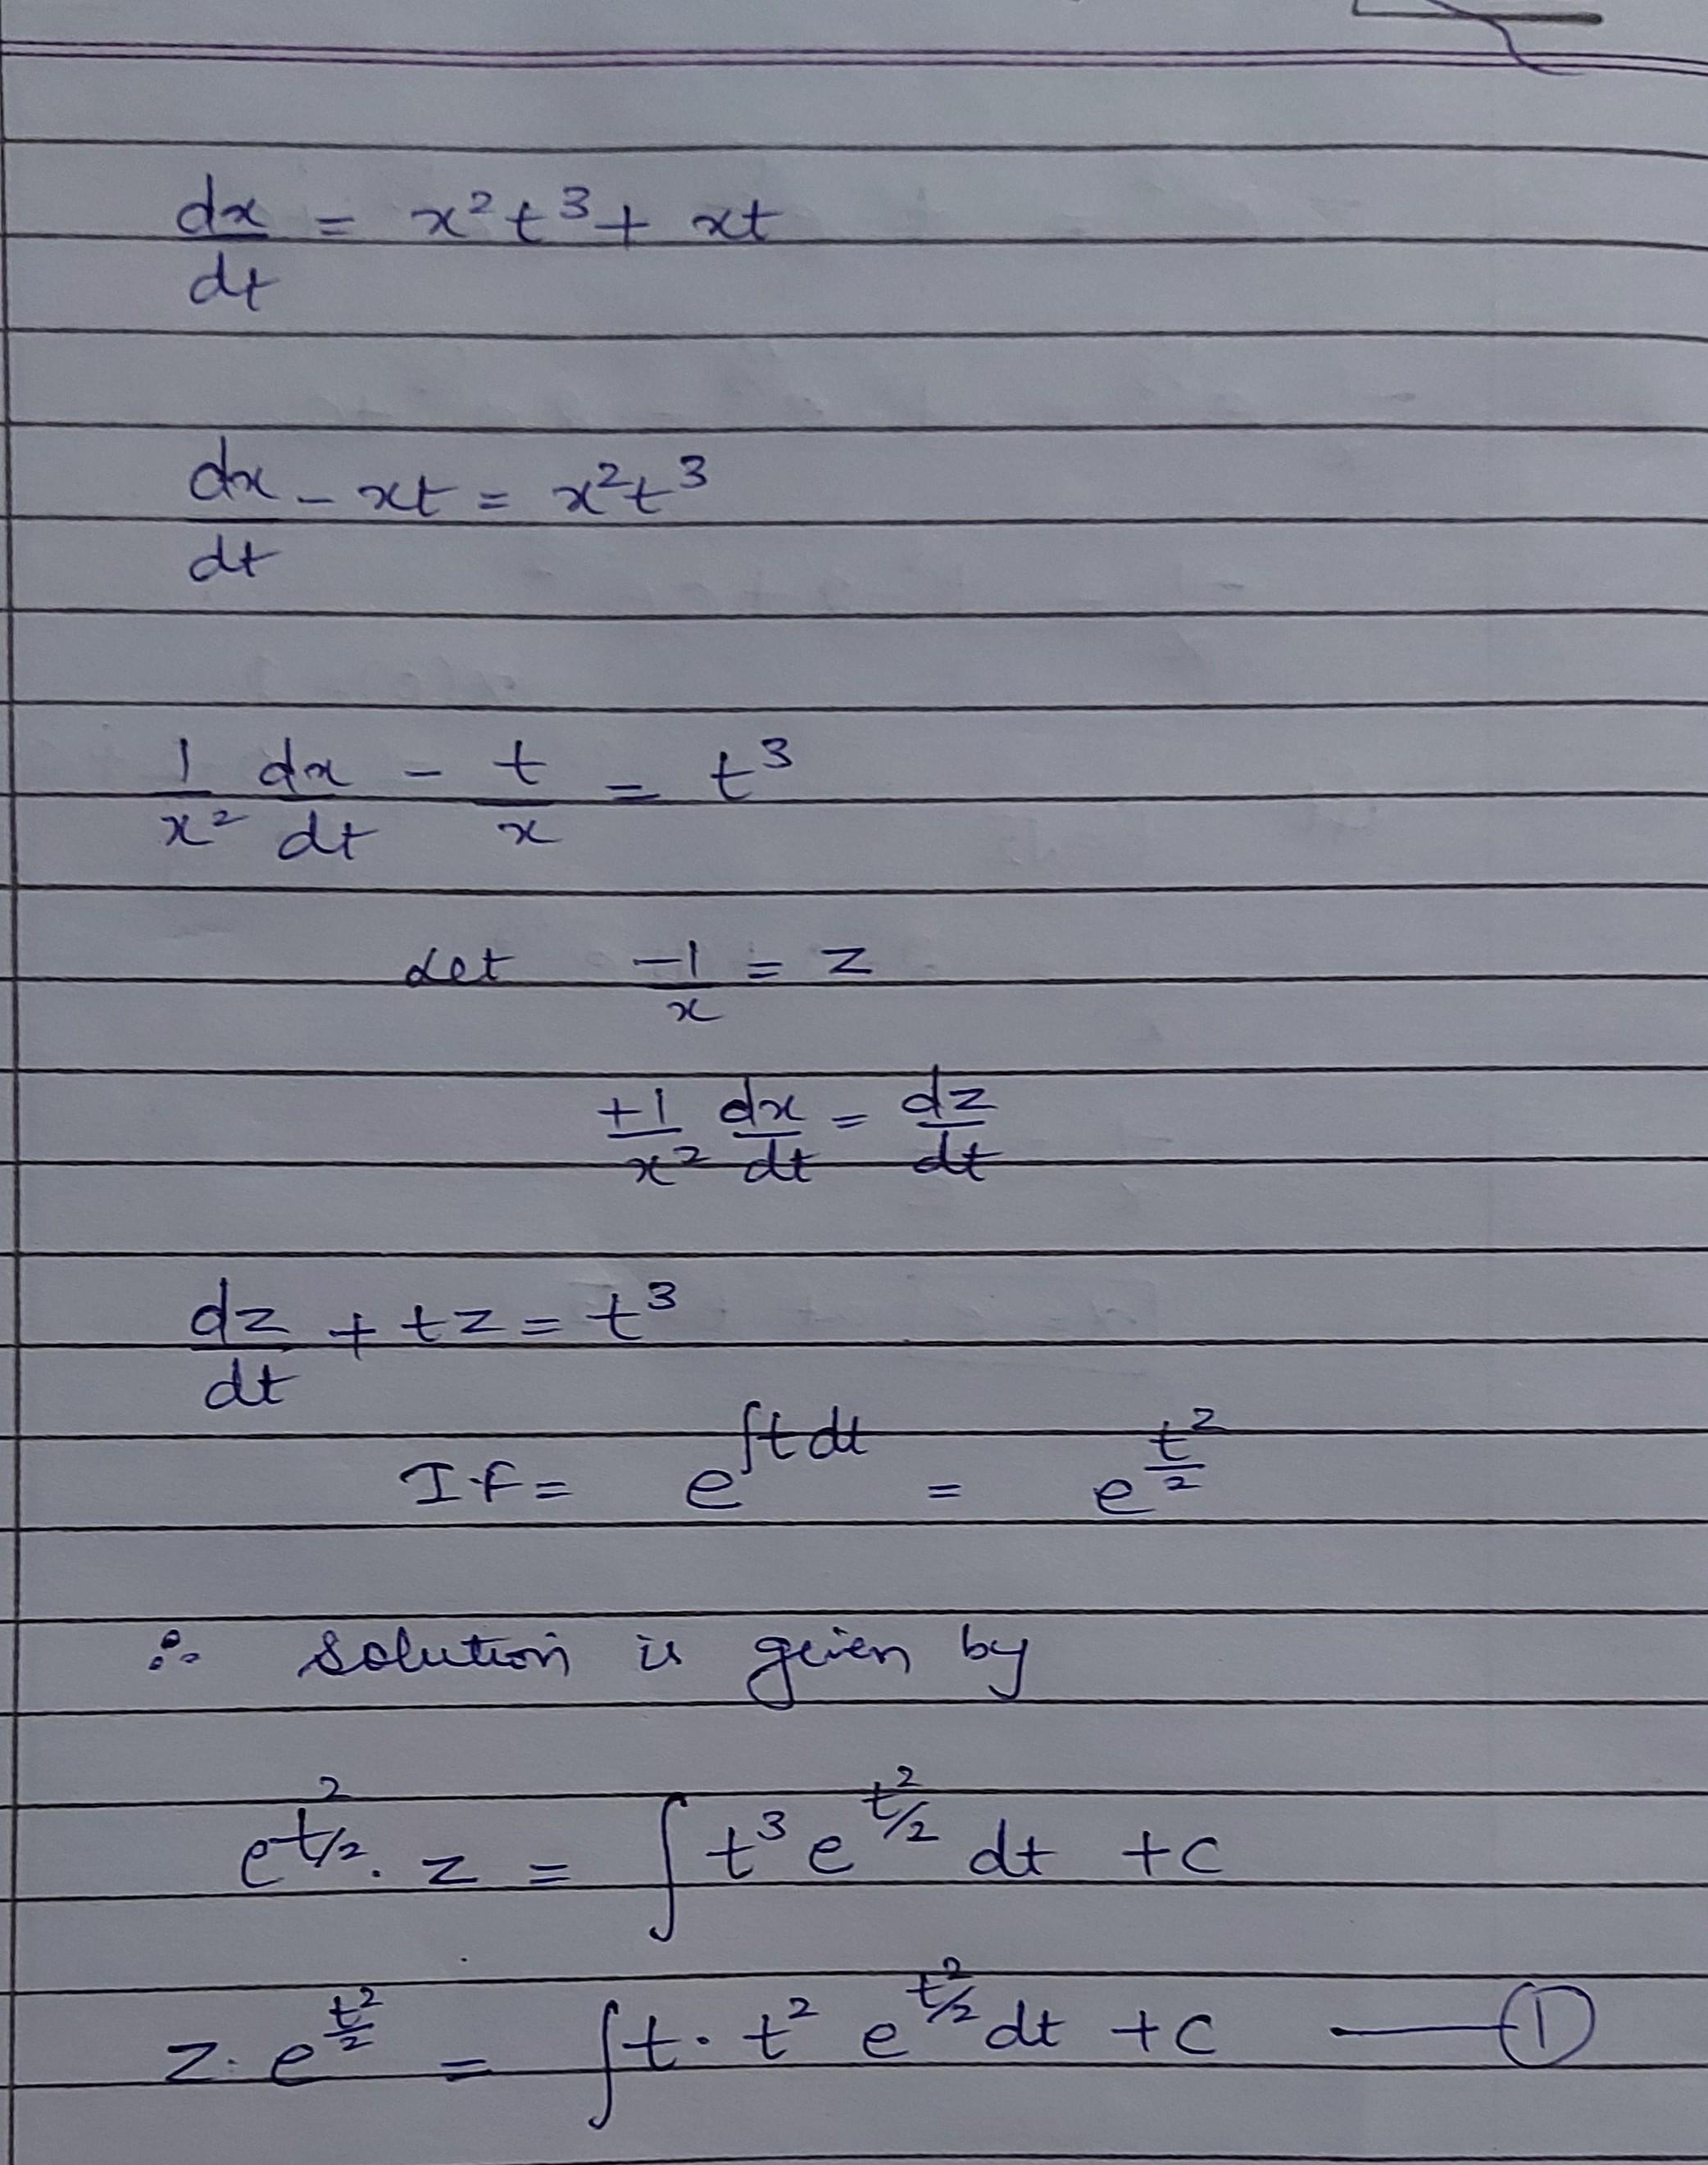 dx/dt = x²t³ + xt
dx/dt - xt = x²t³
1/x² dx/dt - t/x = t³
Let -1/x = z
+1/x² dx/dt = dz/dt
dz/dt + tz = t³
I.f = e^∫t dt = e^(t²/2)
∴ solution is given by
e^(t²/2) . z = ∫ t³ e^(t²/2) dt + c
z. e^(t²/2) = ∫ t · t² e^(t²/2) dt + c —— ①